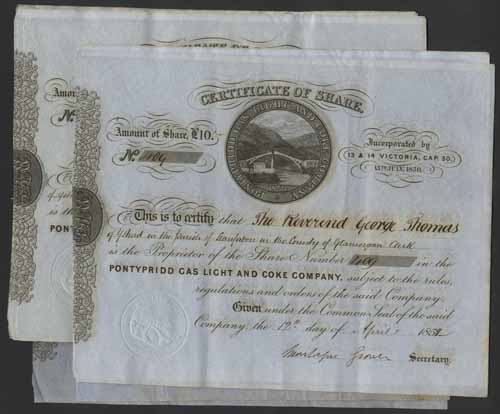 CERTIFICATE OF SHARE.
PONTYPRIDD LIGHT AND COKE COMPANY
Amount of Share, £10.
Incorporated by
13 & 14 VICTORIA, CAP. 50.
No. 409
This is to certify that The Reverend George Thomas
of in the Parish of in the County of Glamorgan Clerk
is the Proprietor of the Share Number 409 in the
PONTYPRIDD GAS LIGHT AND COKE COMPANY, subject to the rules,
regulations and orders of the said Company.
Given under the Common Seal of the said
Company, the 12th day of April
Grover Secretary.
Amou
No.
is the
PONT